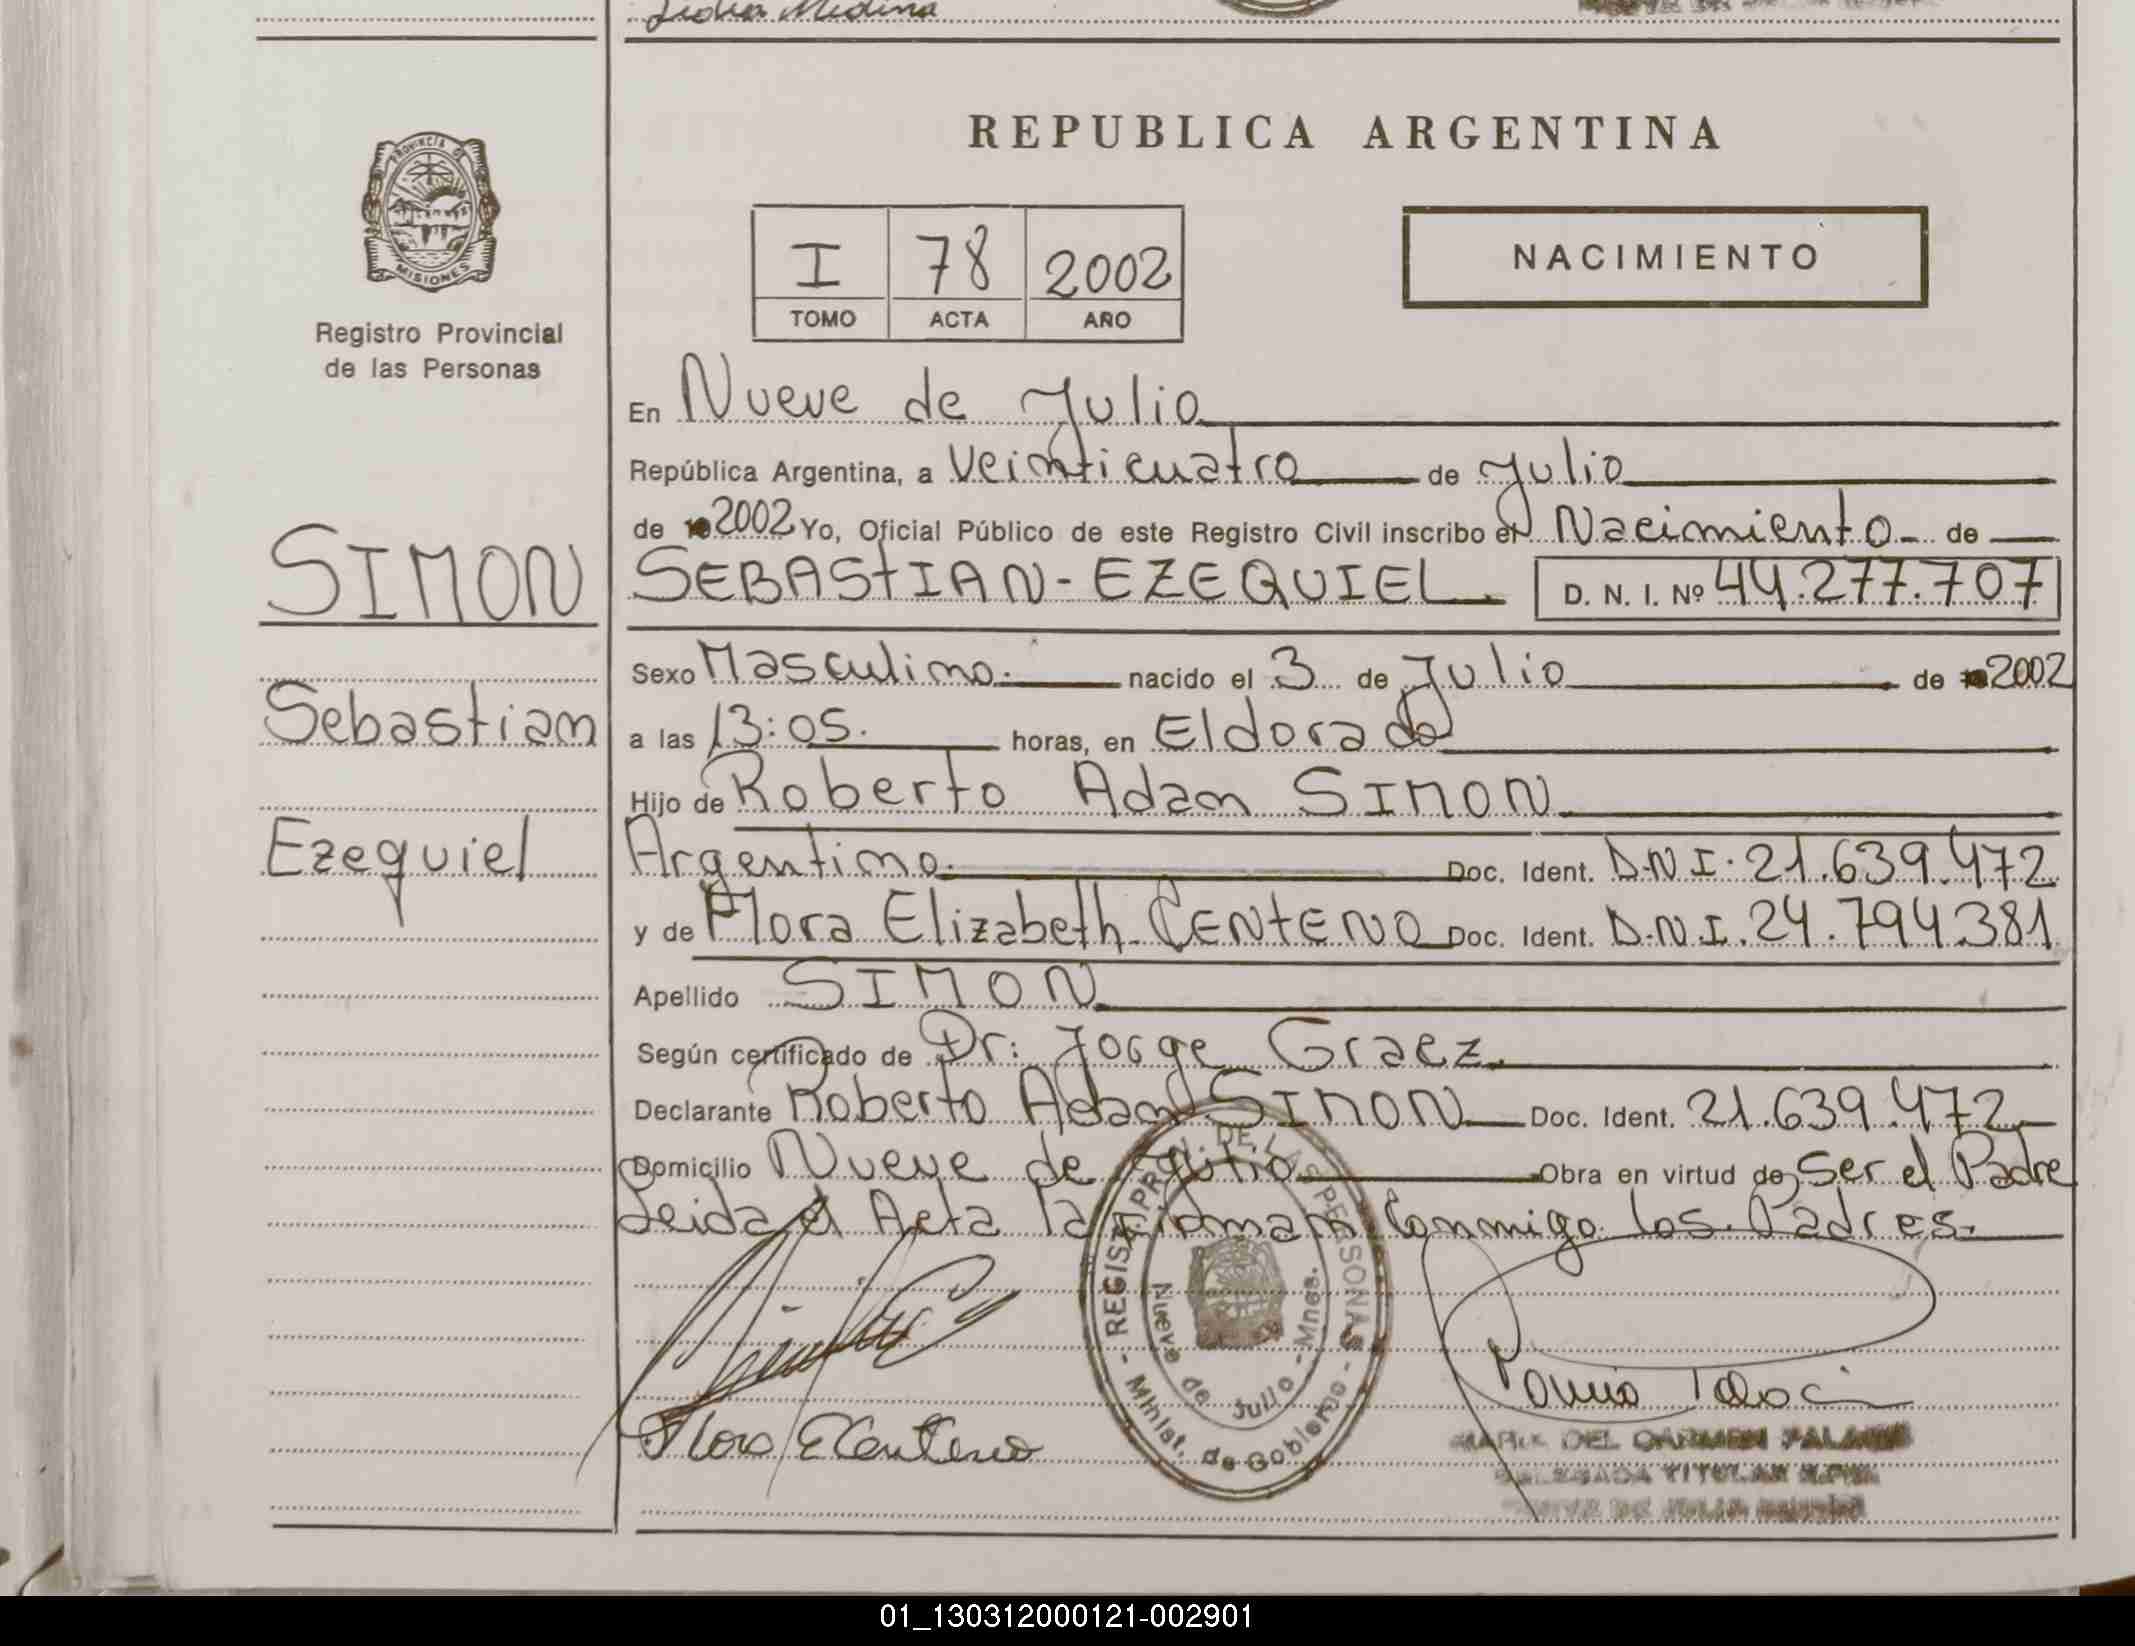 Lidia Medina
PROVINCIA DE
MISIONES
Registro Provincial
de las Personas
SIMON
Sebastian
Ezequiel
REPUBLICA ARGENTINA
I 78 2002
TOMO ACTA AÑO
NACIMIENTO
En Nueve de Julio
República Argentina, a Veinticuatro de Julio
de 2002 Yo, Oficial Público de este Registro Civil inscribo el Nacimiento de
SEBASTIAN-EZEQUIEL. D. N. I. Nº 44.277.707
Sexo Masculino. nacido el 3 de Julio de 2002
a las 13:05. horas, en Eldorado
Hijo de Roberto Adam SIMON
Argentino. Doc. Ident. D.N.I. 21.639.472
y de Flora Elizabeth CENTENO Doc. Ident. D.N.I. 24.794.381
Apellido SIMON
Según certificado de Dr: Jorge Graez.
Declarante Roberto Adam SIMON Doc. Ident. 21.639.472
Domicilio Nueve de Julio Obra en virtud de Ser el Padre
Leida el Acta la Firman Conmigo los Padres.
Flora E Centeno
- REGIST. PROV. DE LAS PERSONAS -
Minist. de Gobierno
Nueve de Julio - Mnes.
MARIA DEL CARMEN
DELEGADA TITULAR
NUEVE DE JULIO
01_130312000121-002901